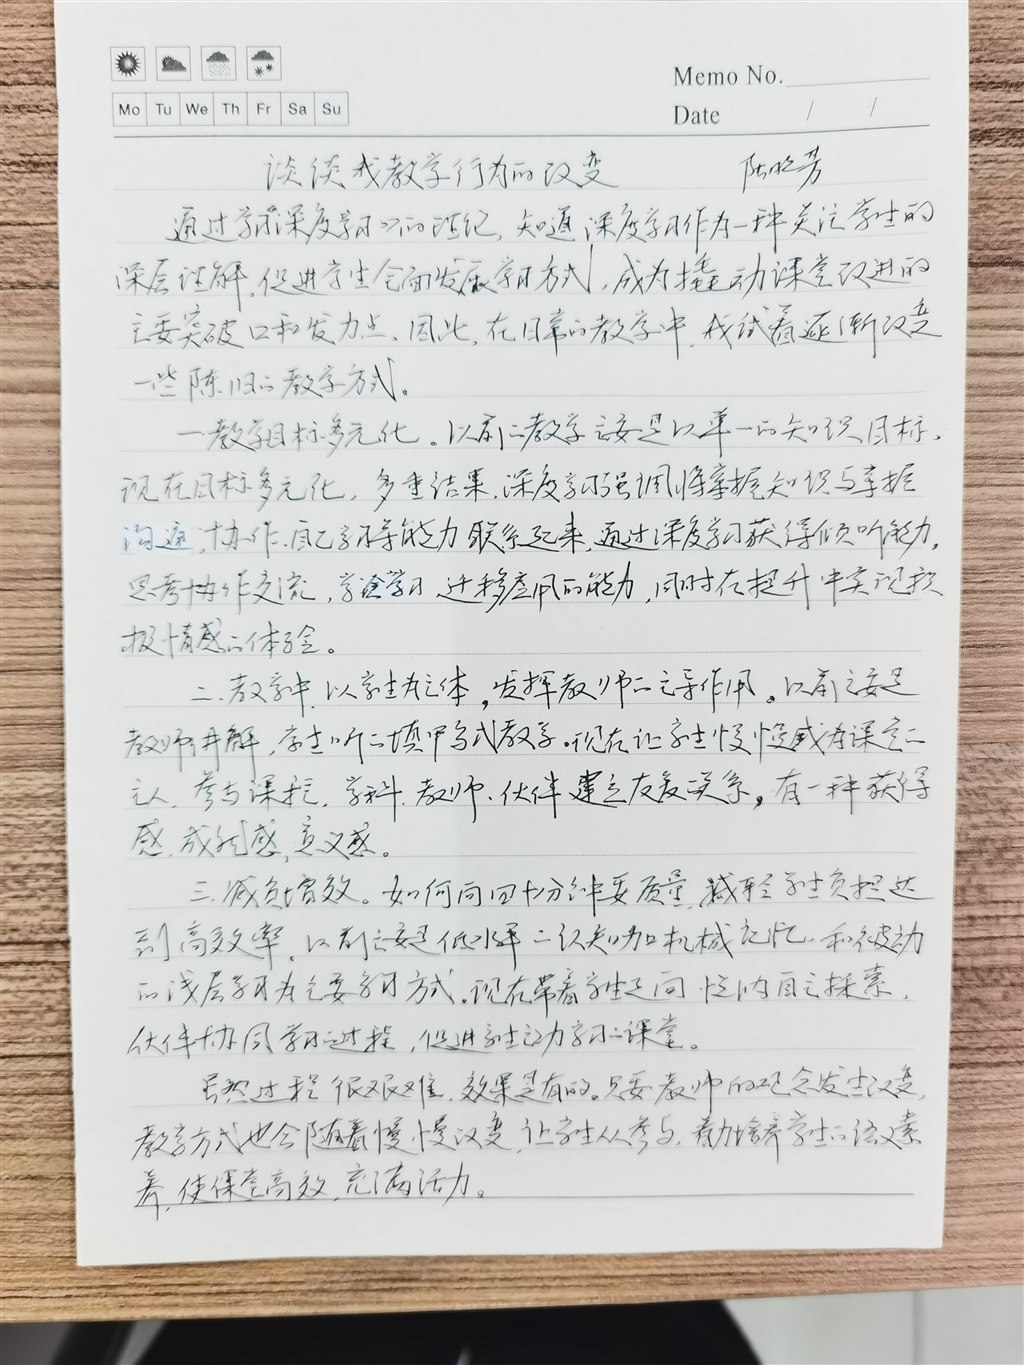 Memo No.
Mo Tu We Th Fr Sa Su
Date / /
谈谈我教学行为的改变 陆 芳
通过学习深度学习 的 , 知道深度学习作为一种关注学生的
深层理解,促进学生全面发展学习方式,成为撬动课堂改进的
主要突破口和发力点。因此,在日常的教学中,我试着逐渐改变
一些陈旧的教学方式。
一.教学目标多元化。以前的教学主要是以单一的知识目标,
现在目标多元化,多重结果,深度学习强调将掌握知识与掌握
沟通,协作,自己学习等能力联系起来,通过深度学习获得倾听能力,
思考协作交流,学会学习,迁移应用的能力,同时在提升中实现积
极情感的体会。
二.教学中,以学生为主体,发挥教师的主导作用。以前主要是
教师讲解,学生听的填鸭式教学。现在让学生慢慢成为课堂的
主人,参与课堂,学科、教师、伙伴建立友爱关系,有一种获得
感,成就感,意义感。
三.减负增效。如何向四十分钟要质量,减轻学生负担达
到高效率,以前主要是低水平的认知加机械记忆,和被动
的浅层学习为主要学习方式。现在带着学生 问 自主探索,
伙伴协同学习的过程,促进学生主动学习的课堂。
虽然过程很艰难,效果是有的。只要教师的观念发生改变,
教学方式也会随着慢慢改变,让学生从参与,着力培养学生的语文素
养,使课堂高效,充满活力。